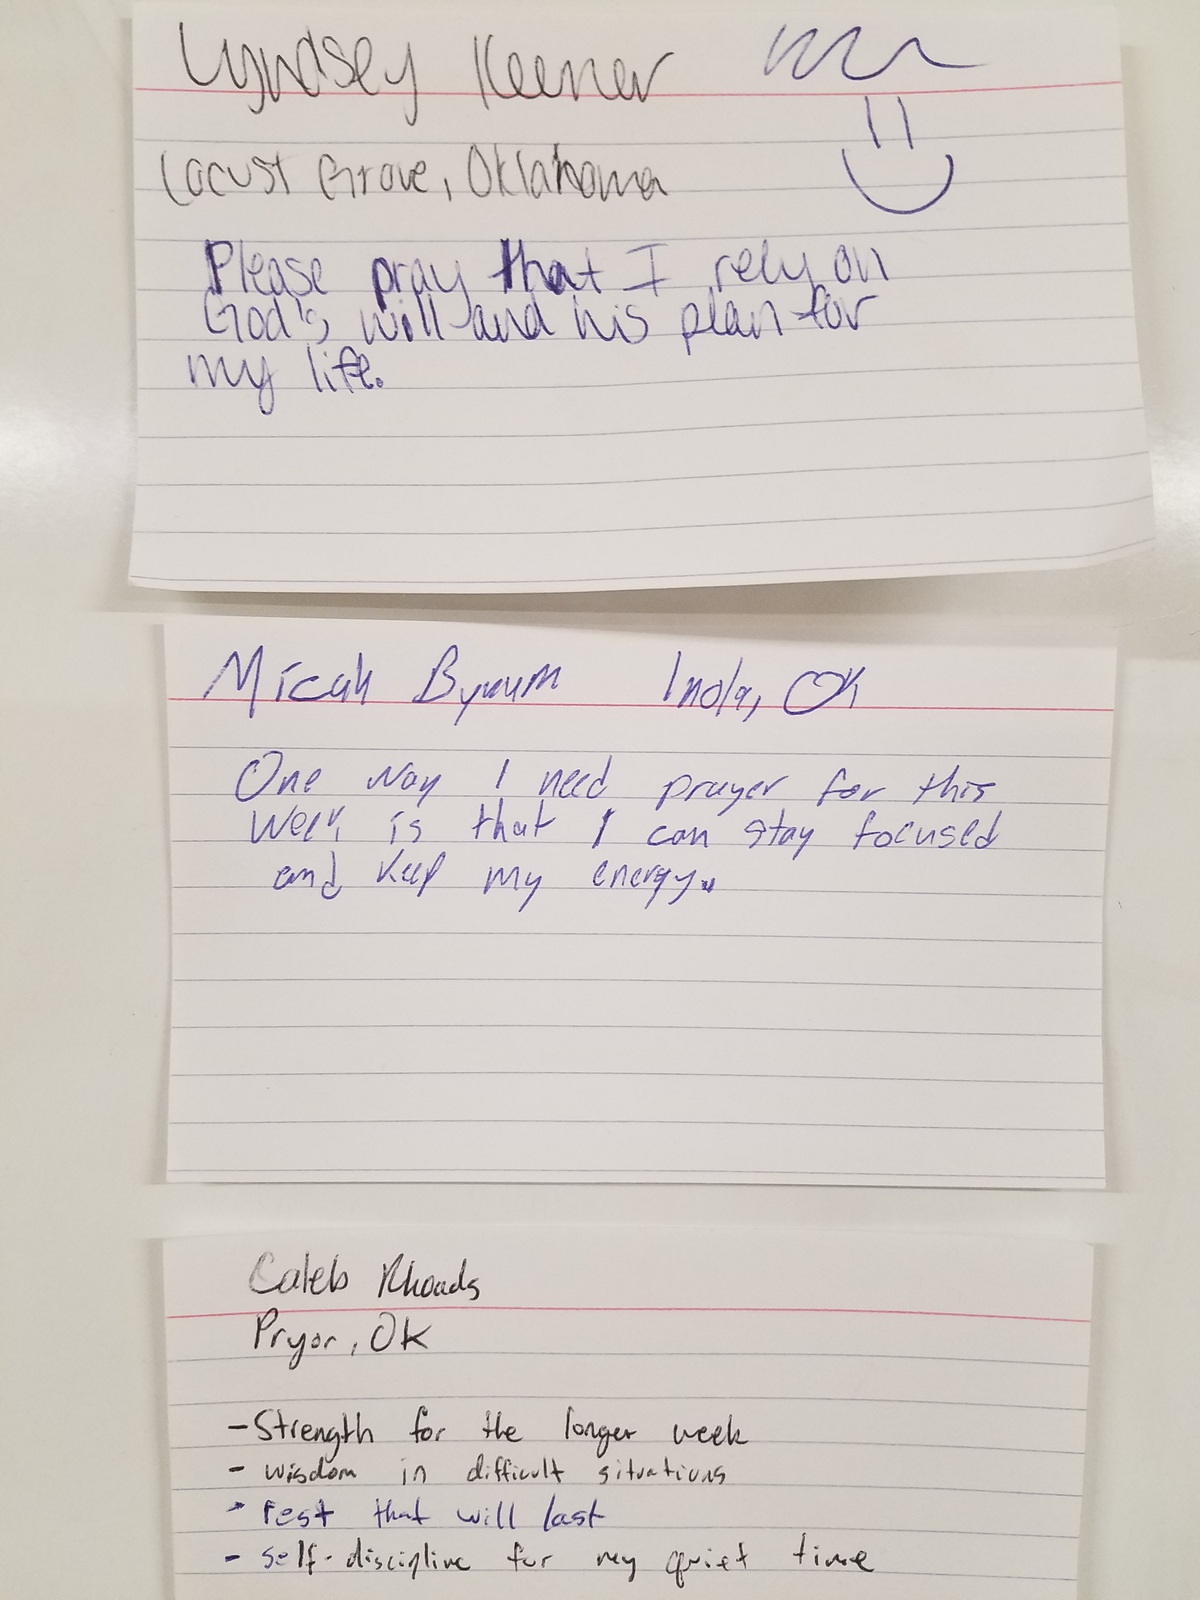 Lyndsey Keener
Locust Grove, Oklahoma
Please pray that I rely on
God's will and his plan for
my life.
Micah Bynum Inola, OK
One way I need prayer for this
week is that I can stay focused
and keep my energy.
Caleb Rhoads
Pryor, OK
- Strength for the longer week
- wisdom in difficult situations
- rest that will last
- self-discipline for my quiet time